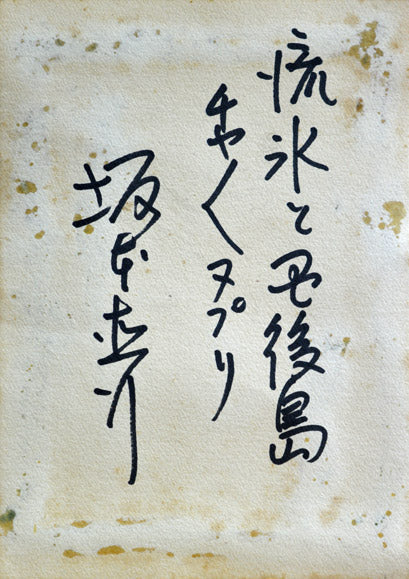 流氷と国後島
チャ〱ヌプリ
坂本直行